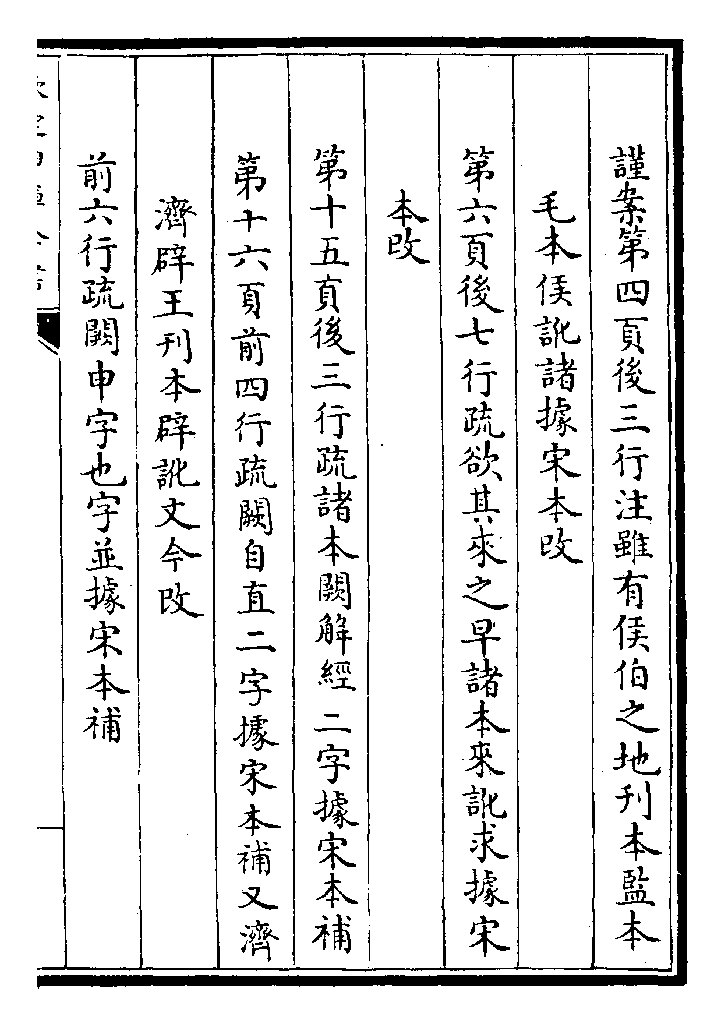 謹案第四頁後三行注雖有侯伯之地刊本監本
毛本侯訛諸據宋本改
第六頁後七行疏欲其來之早諸本來訛求據宋
本改
第十五頁後三行疏諸本闕解經二字據宋本補
第十六頁前四行疏闕自直二字據宋本補又濟
濟辟王刊本辟訛文今改
前六行疏闕申字也字並據宋本補